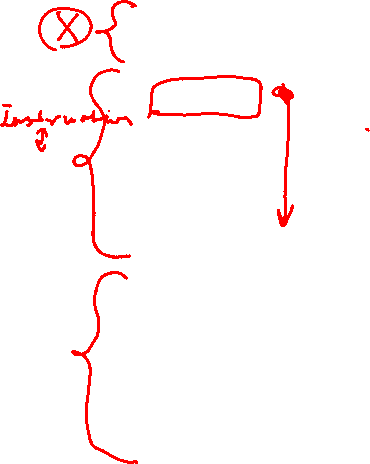 X
Instruction